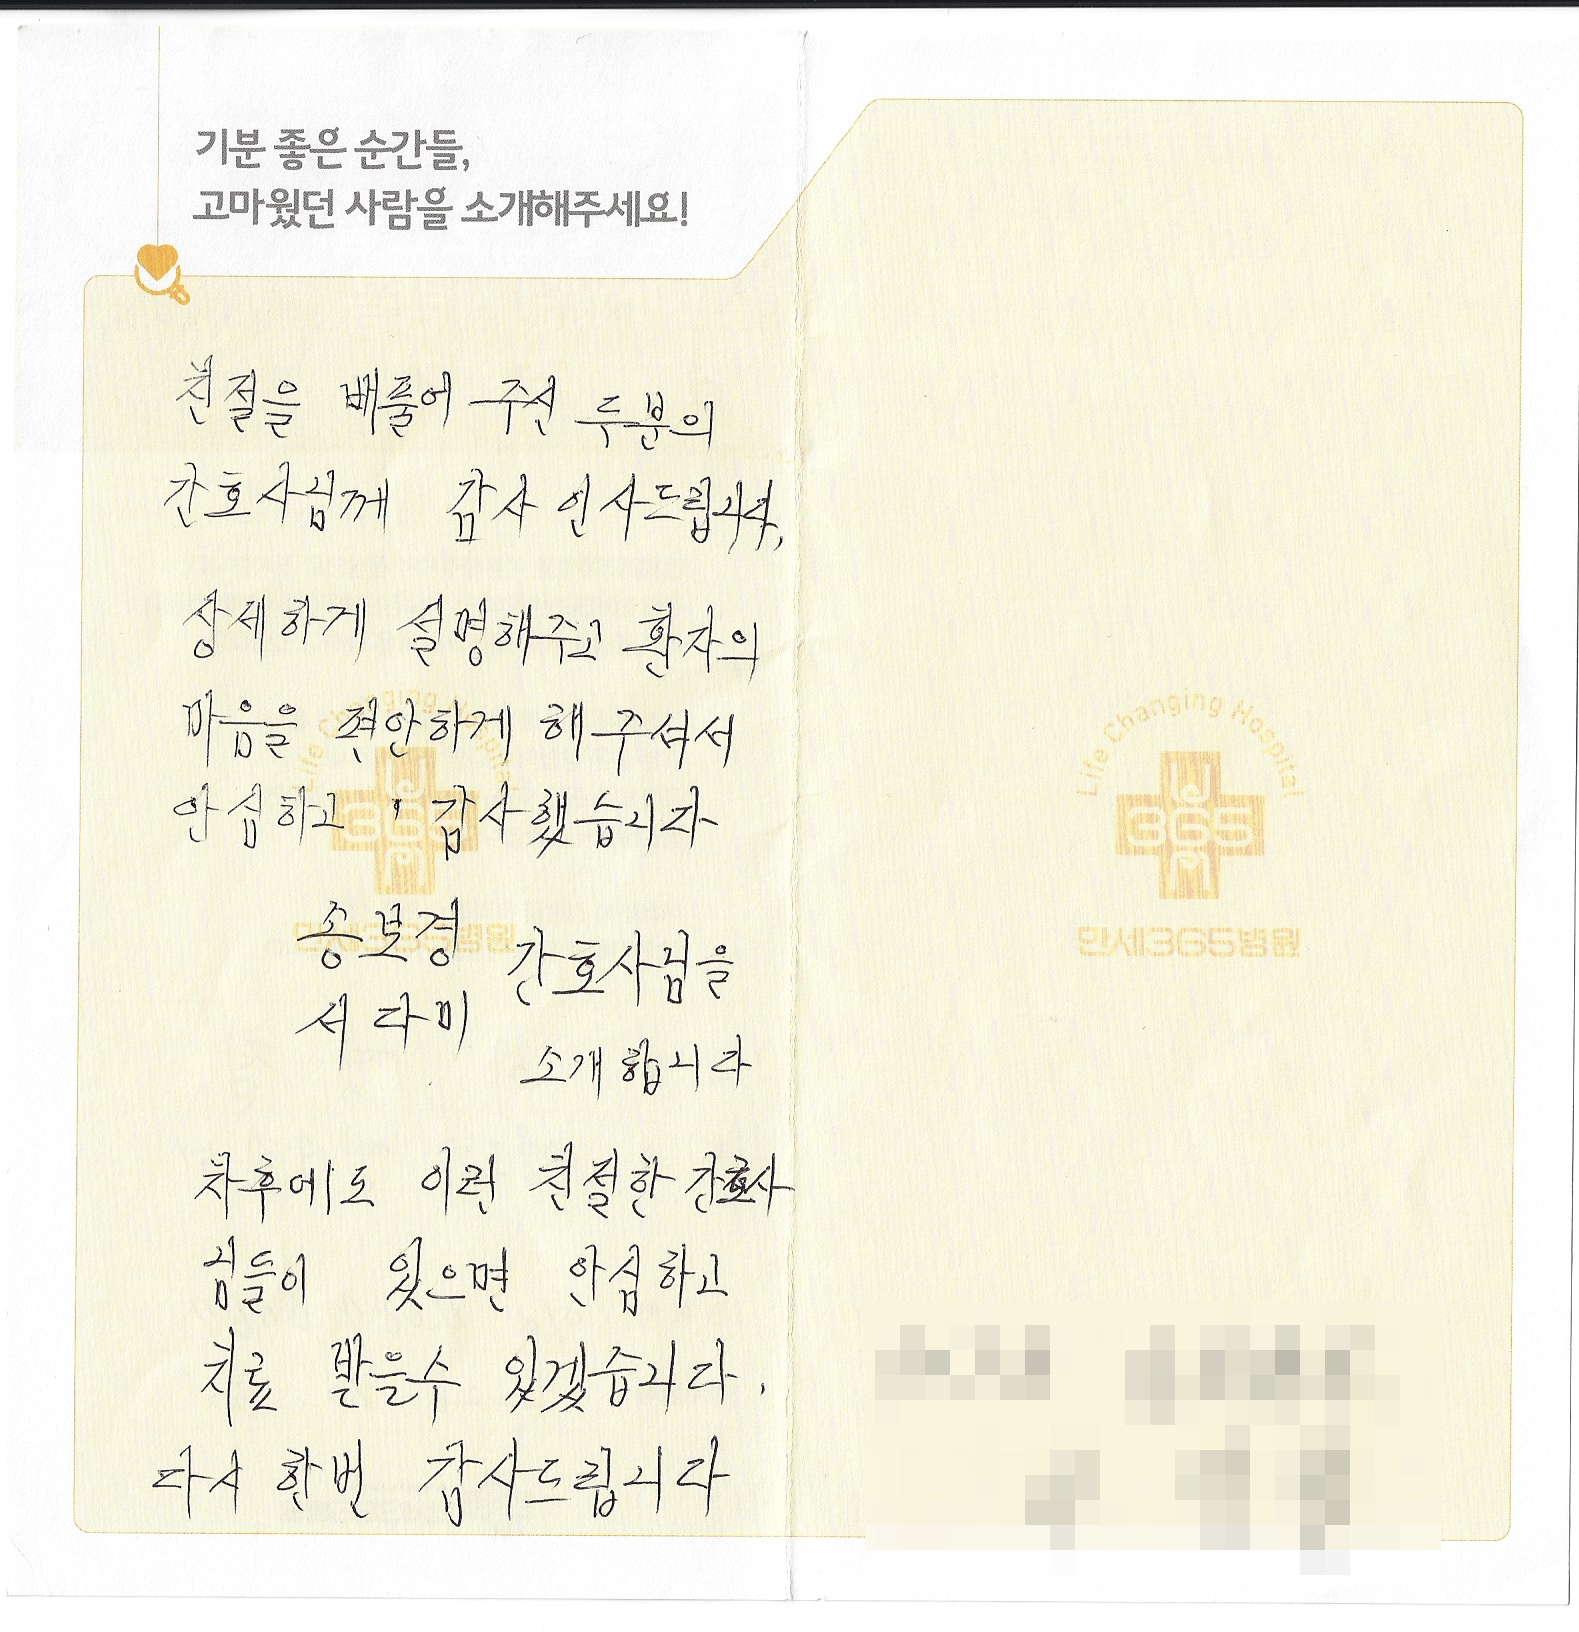 기분 좋은 순간들,
고마웠던 사람을 소개해주세요!
친절을 배풀어 주신 두분의
간호사님께 감사 인사드립니다,
상세하게 설명해주고 환자의
마음을 편안하게 해 주셔서
안심하고 감사했습니다
송보경 간호사님을
서다미
소개합니다
차후에도 이런 친절한 간호사
님들이 있으면 안심하고
치료 받을수 있겠습니다.
다시 한번 감사드립니다
Life Changing Hospital
365
만세365병원
Life Changing Hospital
365
만세365병원